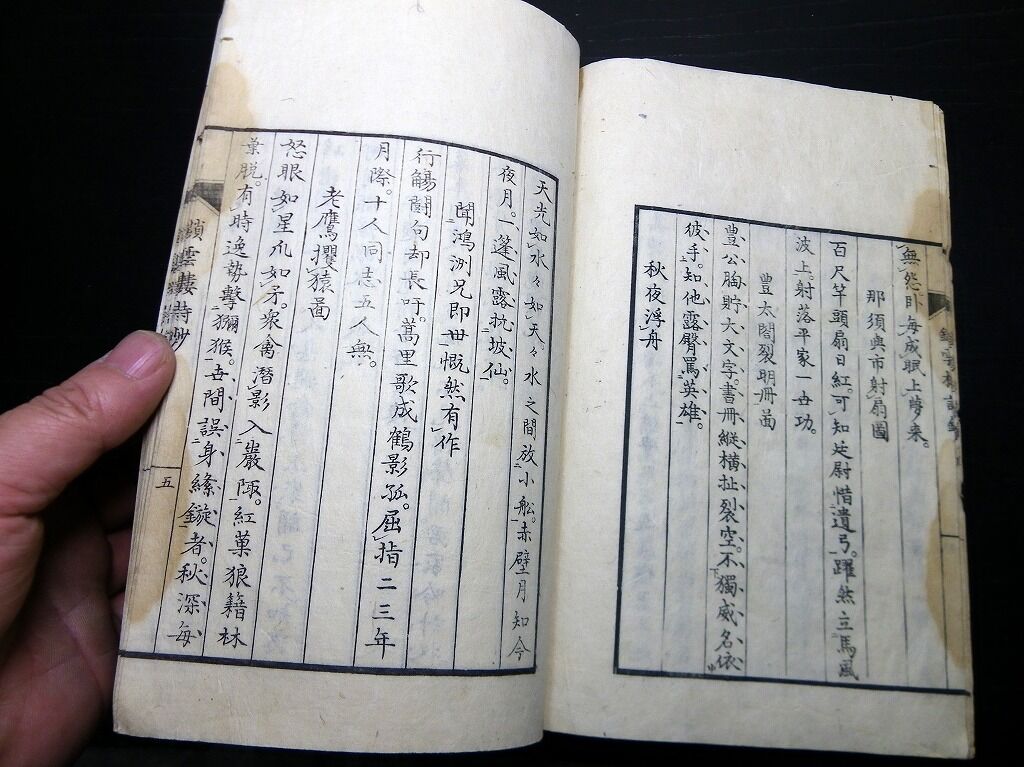 無然卧每感眠上夢来。
那須與市射扇圖
百尺竿頭扇日紅。可知廷尉惜遺弓。躍然立馬風
波上。射落平家一世功。
豊太閤裂明冊圖
豊公胸貯大文字。書冊縦橫扯裂空。不獨威名依
彼手。知他露臀罵英雄。
秋夜浮舟
天光如水々如天々水之間放小舩。赤壁月知今
夜月。一蓬風露抗坡仙。
聞鴻洲兄即世慨然有作
行觴鬪句却長吁。蒿里歌成鶴影孤。屈指二三年
月際。十人同志五人無。
老鷹攫猿圖
怒眼如星爪如矛。衆禽潛影入巖陬。紅菓狼籍林
葉脱。有時逸勢擊獼猴。世間誤身絛鏇者。秋深每
鎖雲楼詩鈔
五